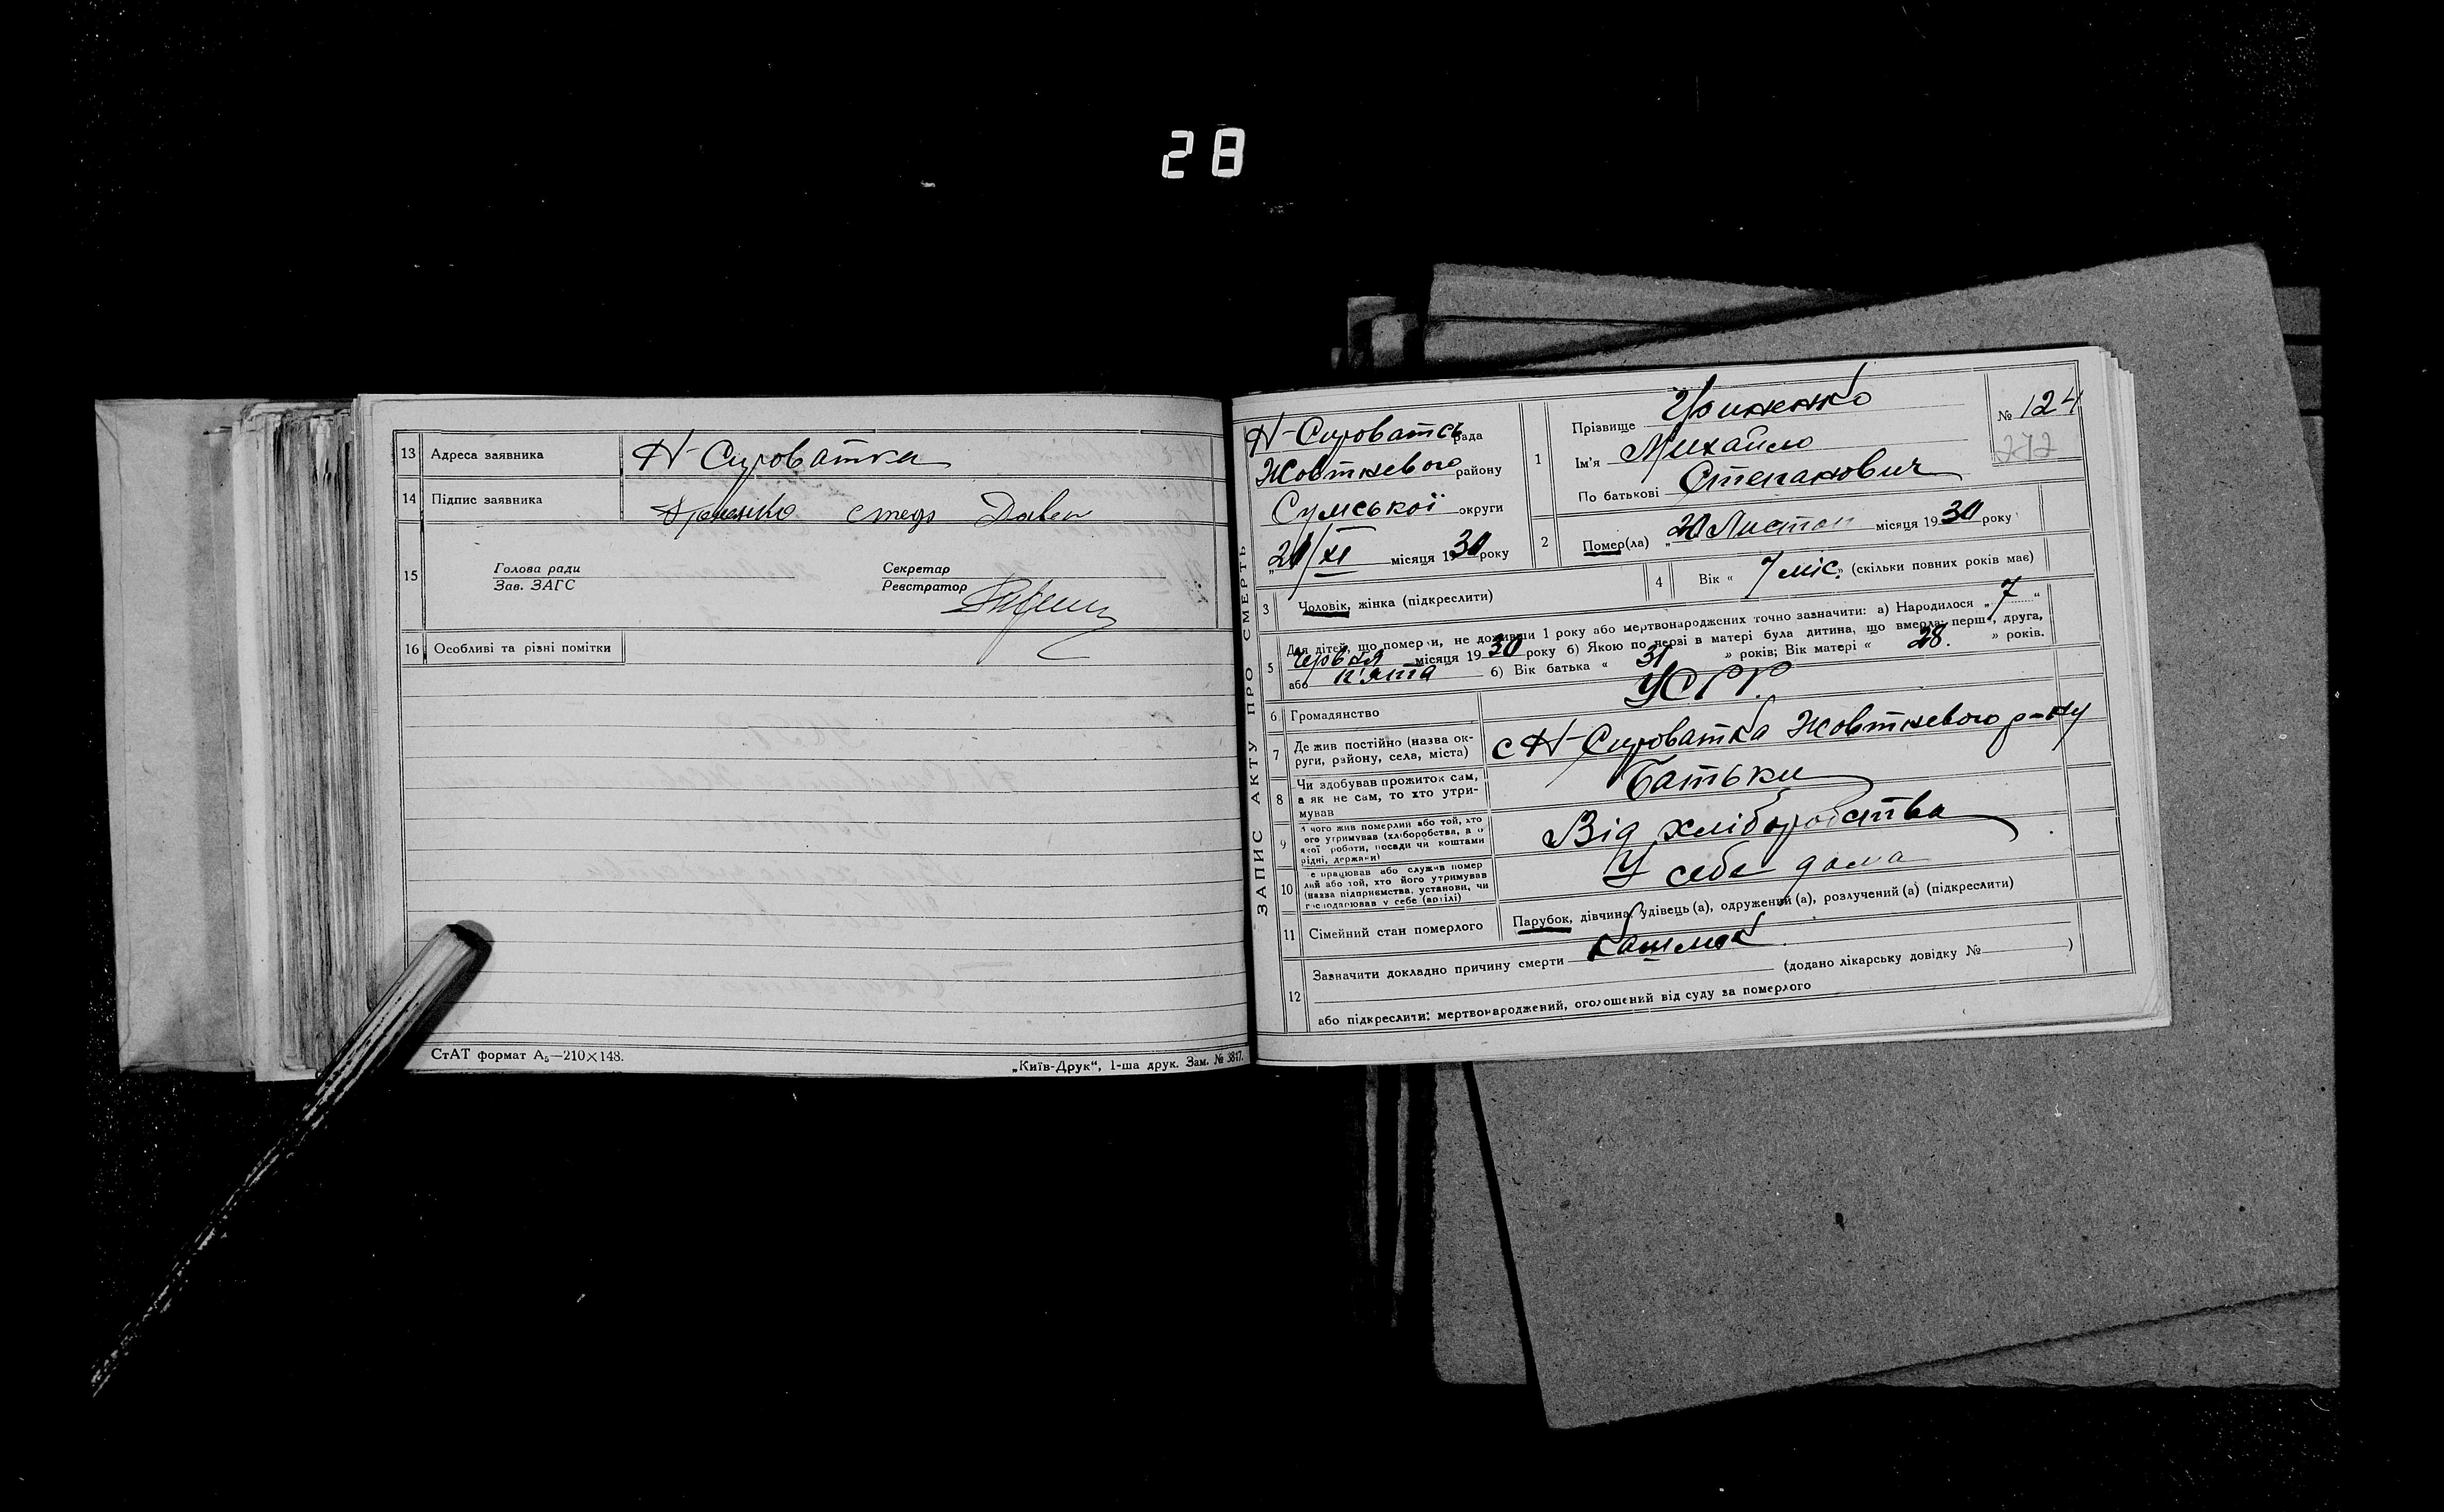 28
13 Адреса заявника Н-Сироватка
14 Підпис заявника
15 Голова ради Секретар
Зав. ЗАГС Реєстратор
16 Особливі та різні помітки
СтАТ формат А₅—210×148.
„Київ-Друк“, 1-ша друк. Зам. № 3817.
ЗАПИС АКТУ ПРО СМЕРТЬ
Н-Сироватсь рада
Жовтневого району
Сумської округи
місяця 1930 року
1 Прізвище
Ім'я Михайло
По батькові Степанович
№ 124
272
2 Помер(ла) „20 Листоп місяця 1930 року
3 Чоловік, жінка (підкреслити)
4 Вік « 7 міс.» (скільки повних років має)
5 Для дітей, що померли, не доживши 1 року або мертвонароджених точно зазначити: а) Народилося „7“
червня місяця 1930 року б) Якою по черзі в матері була дитина, що вмерла: перша, друга,
або п'ята б) Вік батька « 31 » років; Вік матері « 28. » років.
6 Громадянство УСРР
7 Де жив постійно (назва ок-
руги, району, села, міста) с Н-Сироватка Жовтневого р-ну
8 Чи здобував прожиток сам,
а як не сам, то хто утри-
мував Батьки
9 з чого жив померлий або той, хто
його утримував (хліборобства, з
якої роботи, посади чи коштами
рідні, держави) Від хліборобства
10 Де працював або служив помер
лий або той, хто його утримував
(назва підприємства, установи, чи
господарював у себе (артілі) У себе дома
11 Сімейний стан померлого Парубок, дівчина, удівець (а), одружений (а), розлучений (а) (підкреслити)
12 Зазначити докладно причину смерти кашлюк
(додано лікарську довідку № )
або підкреслити: мертвонароджений, оголошений від суду за померлого